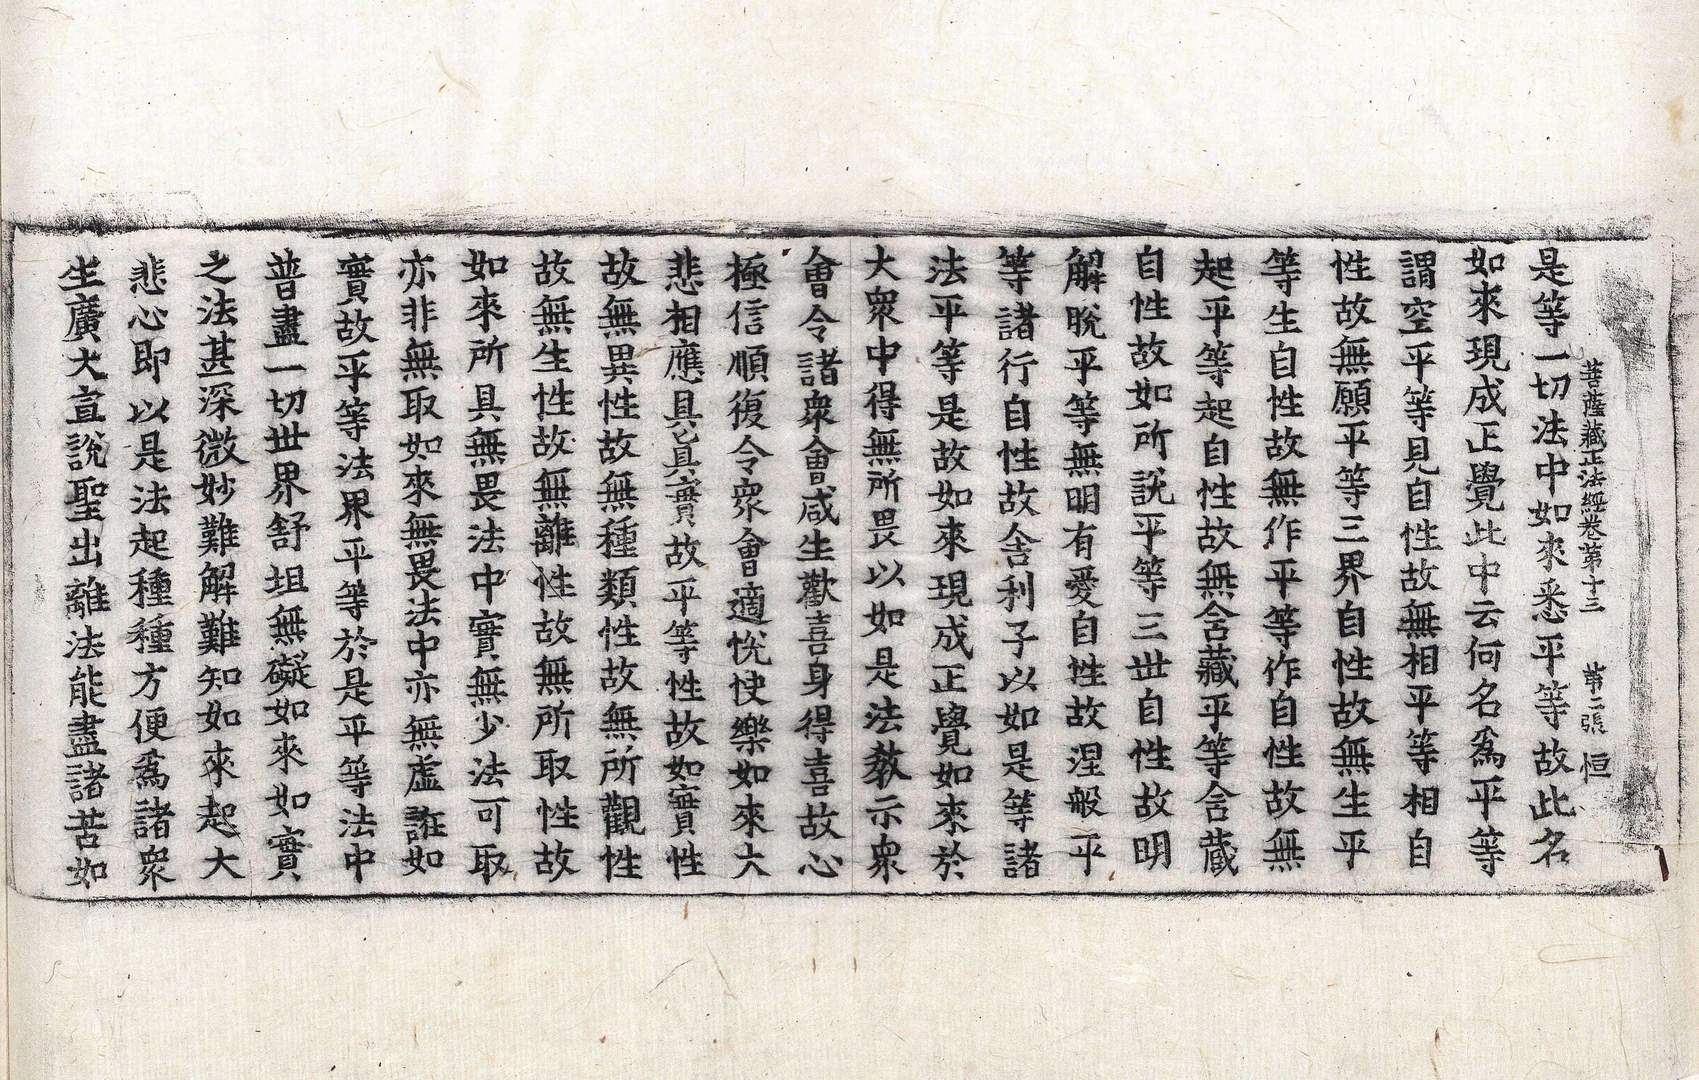 菩薩藏正法經卷第十三　第二張　恒
是等一切法中如來悉平等故此名
如來現成正覺此中云何名爲平等
謂空平等見自性故無相平等相自
性故無願平等三界自性故無生平
等生自性故無作平等作自性故無
起平等起自性故無含藏平等含藏
自性故如所說平等三世自性故明
解脫平等無明有愛自性故涅槃平
等諸行自性故舍利子以如是等諸
法平等是故如來現成正覺如來於
大衆中得無所畏以如是法教示衆
會令諸衆會咸生歡喜身得喜故心
極信順復令衆會適悅快樂如來大
悲相應具眞實故平等性故如實性
故無異性故無種類性故無所觀性
故無生性故無離性故無所取性故
如來所具無畏法中實無少法可取
亦非無取如來無畏法中亦無虛誑如
實故平等法界平等於是平等法中
普盡一切世界舒坦無礙如來如實
之法甚深微妙難解難知如來起大
悲心即以是法起種種方便爲諸衆
生廣大宣說聖出離法能盡諸苦如